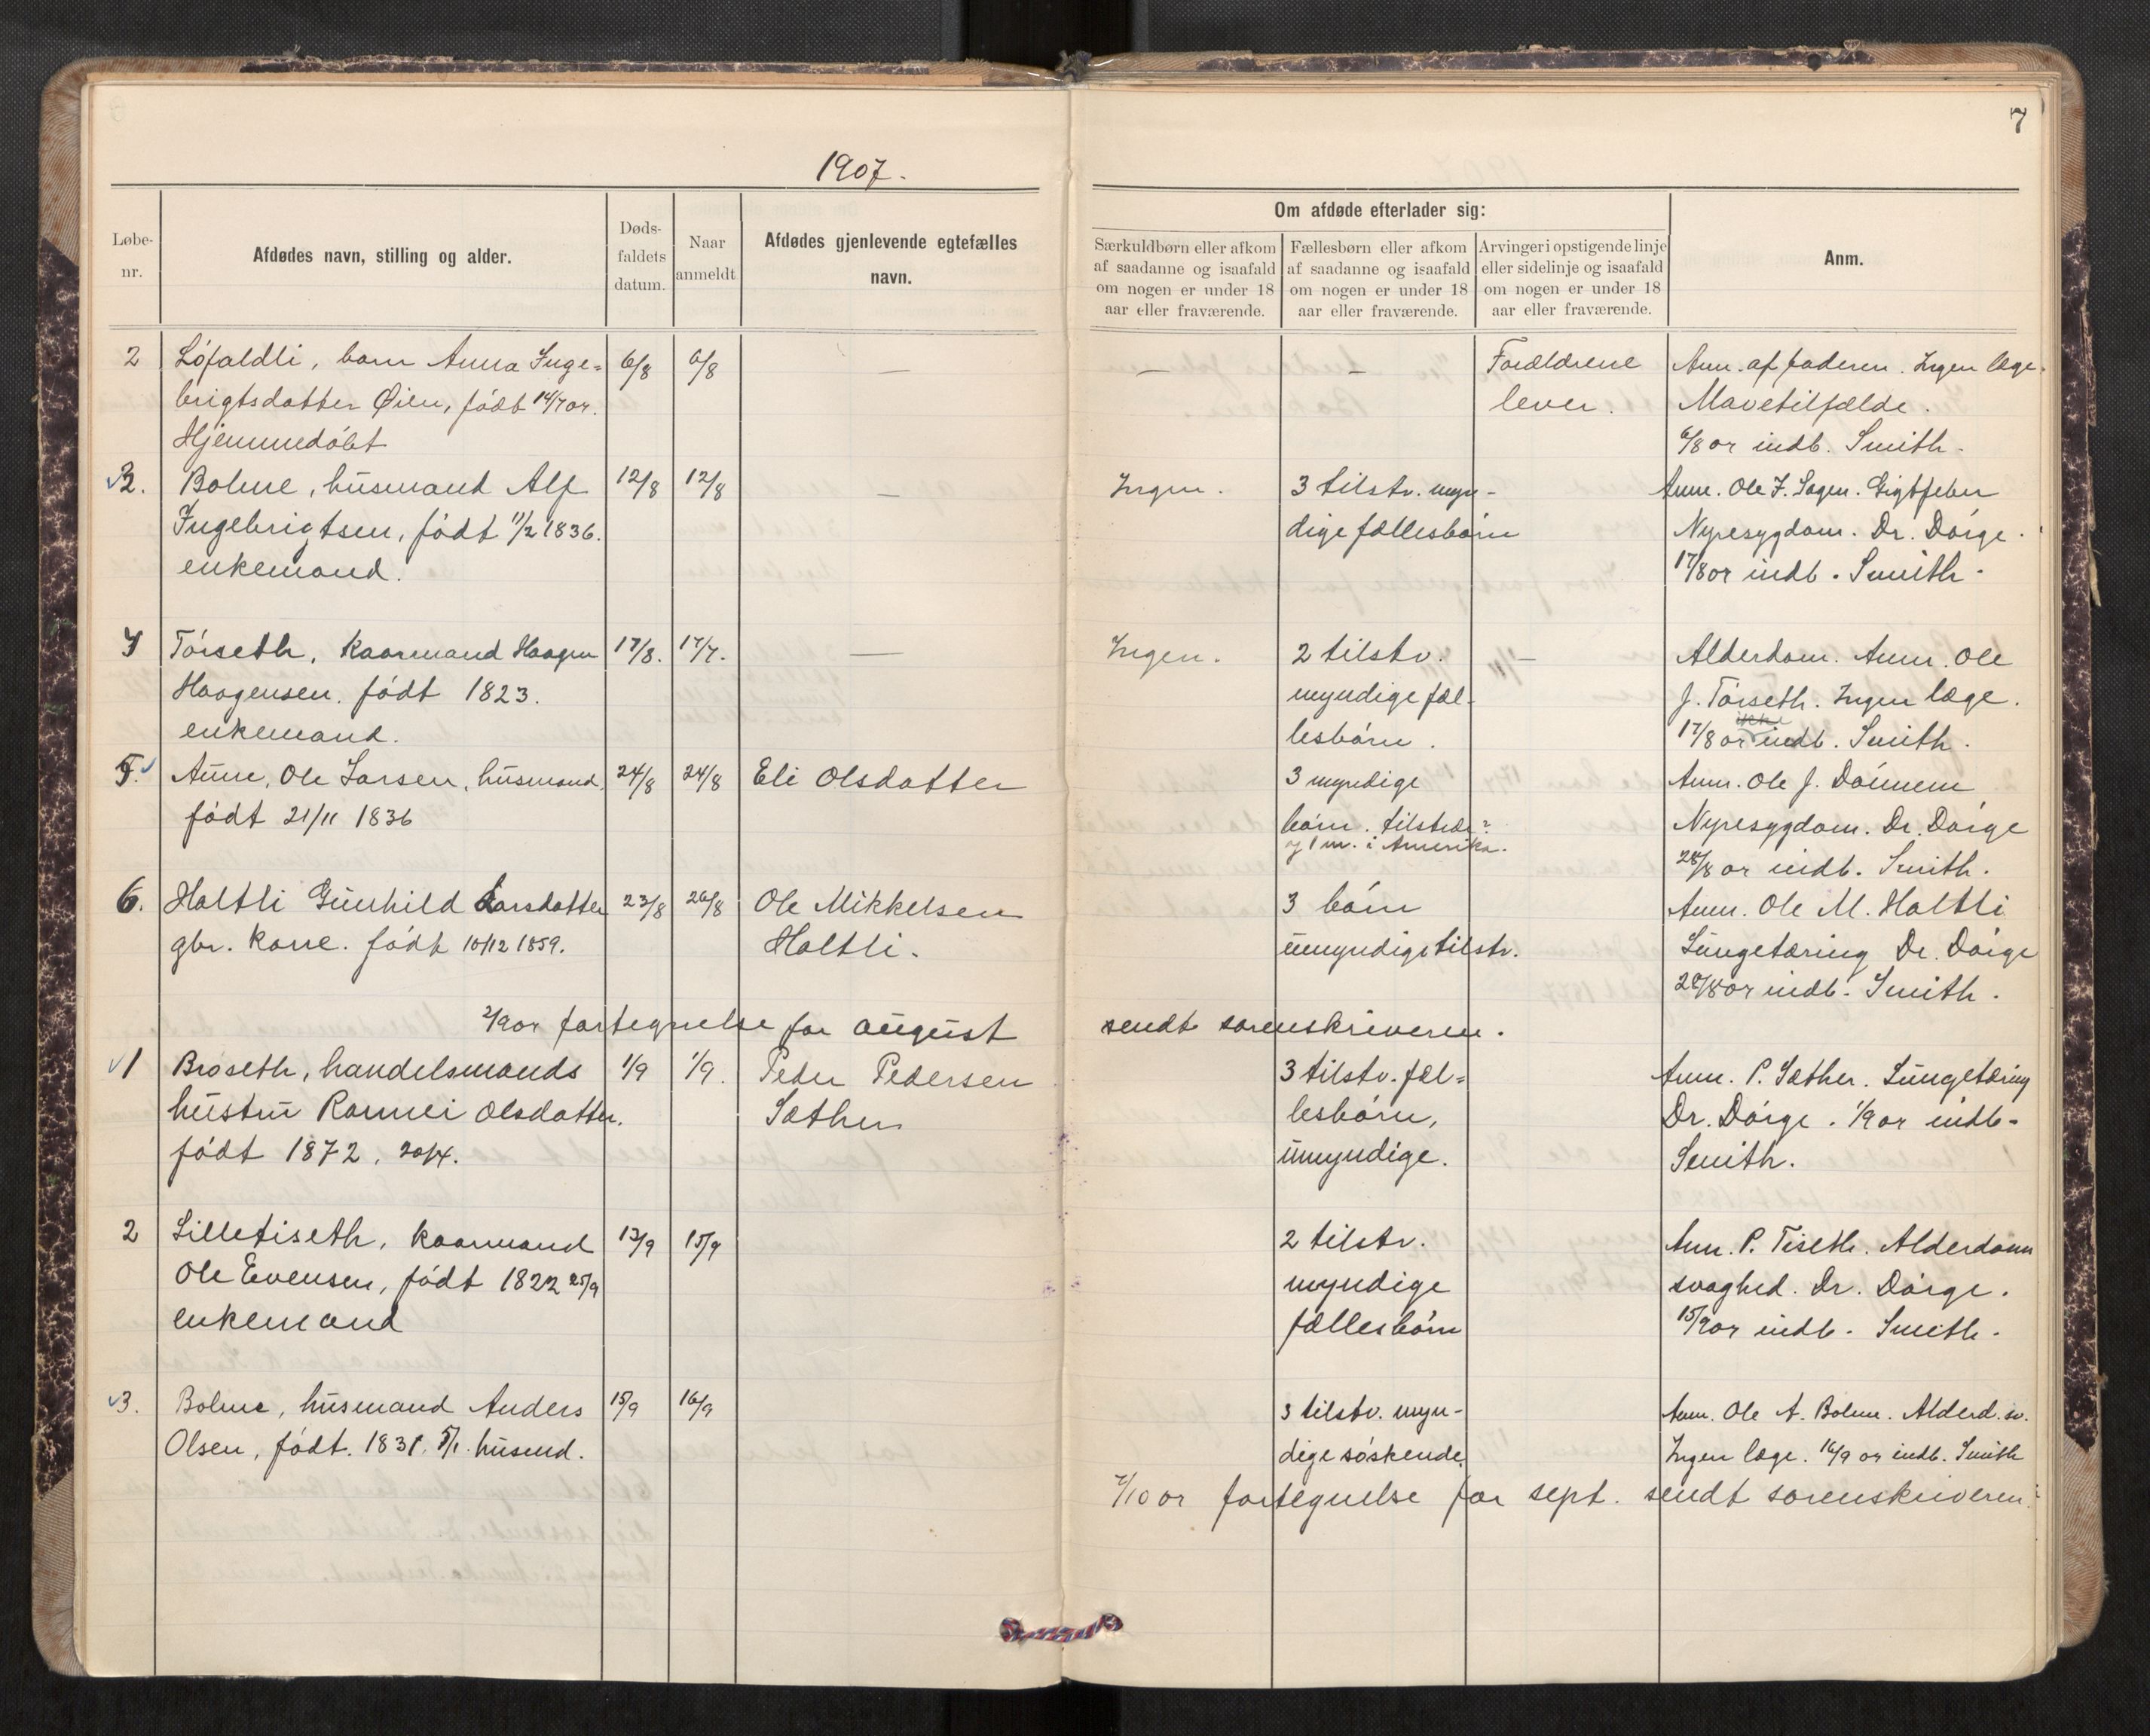 7
1907.
Løbe-
nr.
Afdødes navn, stilling og alder.
Døds-
faldets
datum.
Naar
anmeldt
Afdødes gjenlevende egtefælles
navn.
Om afdøde efterlader sig:
Særkuldbørn eller afkom
af saadanne og isaafald
om nogen er under 18
aar eller fraværende.
Fællesbørn eller afkom
af saadanne og isaafald
om nogen er under 18
aar eller fraværende.
Arvinger i opstigende linje
eller sidelinje og isaafald
om nogen er under 18
aar eller fraværende.
Anm.
2 Löfaldli, barn Anna Inge= 6/8 6/8 — — — Forældrene Anm. af faderen. Ingen læge.
brigtsdatter Øien, født 14/7 07. lever. Mavetilfælde.
Hjemmedöbt 6/8 07 indb. Smith.
Bolme, husmand Alf 12/8 12/8 — Ingen. 3 tilstv. myn- Anm. Ole J. Sagen. Gigtfeber
Ingebrigtsen, födt 11/2 1836. dige fællesbörn Nyresygdom. Dr. Dörge.
enkemand. 17/8 07 indb. Smith.
Törseth, kaarmand Haagen 17/8. 17/7. — Ingen. 2 tilstv. — Alderdom. Anm. Ole
Haagensen. födt 1823. myndige fæl- J. Törseth. Ingen læge.
enkemand. lesbörn. 17/8 07 indb. Smith.
5. Aune, Ole Larsen, husmand, 24/8 24/8 Eli Olsdatter 3 myndige Anm. Ole J. Dönnem
födt 21/11 1836 börn. tilstede= Nyresygdom. Dr. Dörge
og 1 m. i Amerika. 28/8 07 indb. Smith.
6. Haltli Gunhild Larsdatter 23/8 26/8 Ole Mikkelsen 3 börn Anm. Ole M. Haltli
gbr. kone. födt 10/12 1859. Haltli. umyndige tilstv. Lungetæring Dr. Dörge
28/8 07 indb. Smith.
2/9 07 fortegnelse for august sendt sorenskriveren.
1 Bröseth, handelsmands 1/9 1/9. Peder Pedersen 3 tilstv. fæl= Anm. P. Sæther. Lungetæring
hustru Rannei Olsdatter. Sæther lesbörn, Dr. Dörge. 1/9 07 indb.
födt 1872, 20/4. umyndige. Smith.
2 Lilletiseth, kaarmand 13/9 15/9 2 tilstv. Anm. P. Tiseth. Alderdom
Ole Evensen, födt 1822 25/9 myndige svaghed. Dr. Dörge.
enkemand fællesbörn 15/9 07 indb. Smith.
3. Bolme, husmand Anders 15/9 16/9 3 tilstv. myn- Anm. Ole A. Bolme. Alderd. sv.
Olsen, födt. 1831. 5/1. husmd. dige söskende. Ingen læge. 16/9 07 indb. Smith
7/10 07 fortegnelse for sept. sendt sorenskriveren.